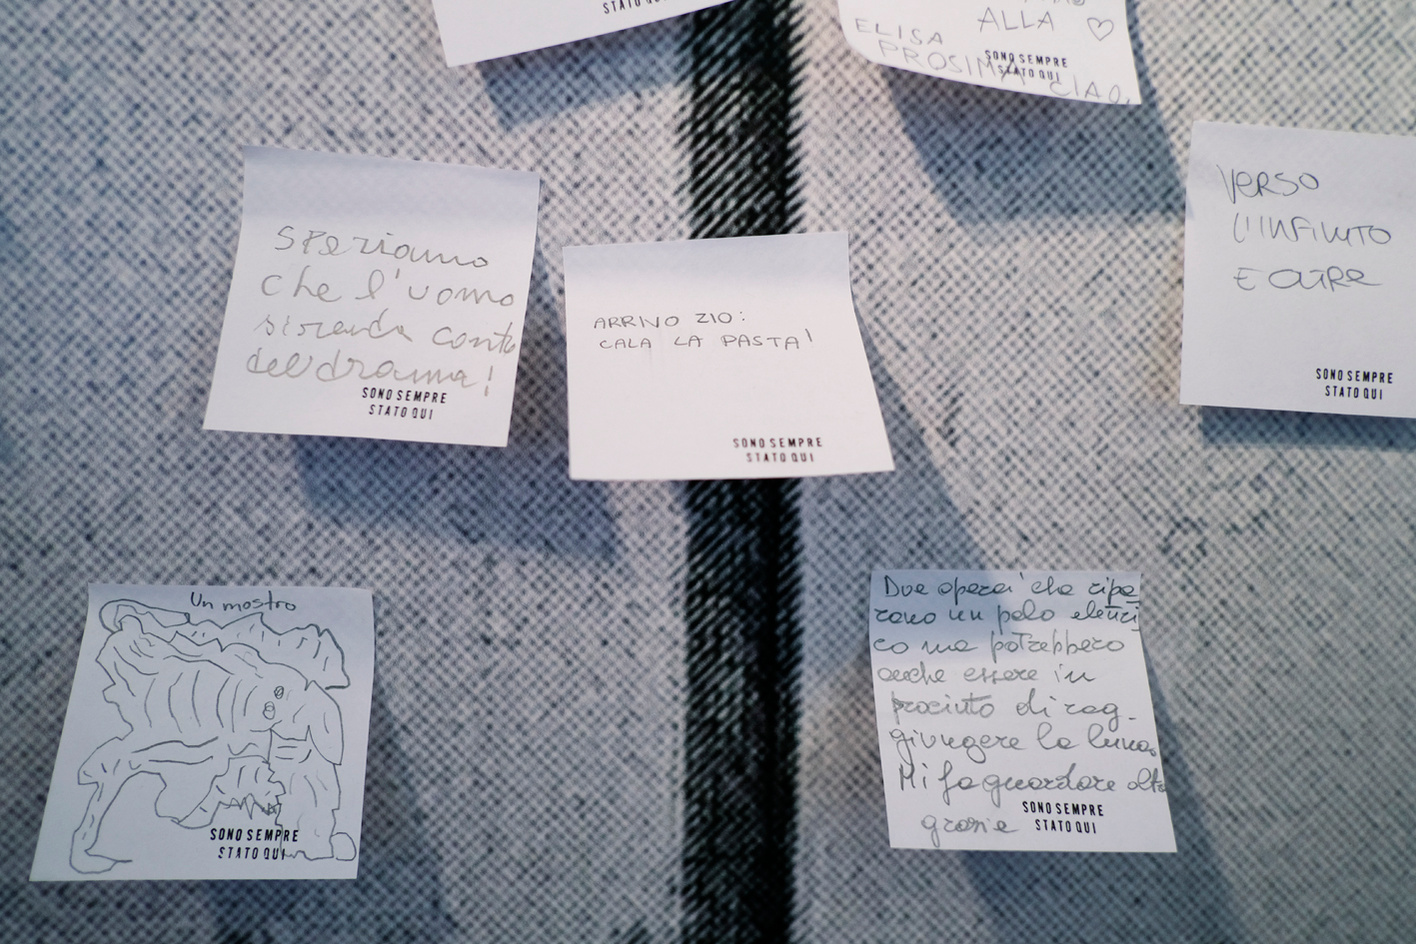 STATO QUI
ALLA ♡
ELISA
PROSIMA CIAO
SONO SEMPRE
STATO QUI
VERSO
L'INFINITO
E OLTRE
SONO SEMPRE
STATO QUI
Speriamo
che l'uomo
si renda conto
del dramma!
SONO SEMPRE
STATO QUI
ARRIVO ZIO:
CALA LA PASTA!
SONO SEMPRE
STATO QUI
Un mostro
SONO SEMPRE
STATO QUI
Due operai che ripa
rano un palo elettri
co ma potrebbero
anche essere in
procinto di rag-
giungere la luna.
Mi fa guardare alto
grazie
SONO SEMPRE
STATO QUI